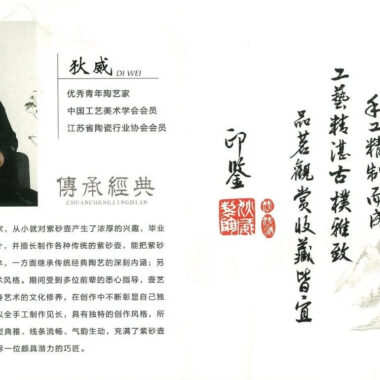 狄威
DI WEI
优秀青年陶艺家
中国工艺美术学会会员
江苏省陶瓷行业协会会员
傳承經典
CHUANCHENGJINGDIAN
家，从小就对紫砂壶产生了浓厚的兴趣，毕业
计，并擅长制作各种传统的紫砂壶，能把紫砂
，一方面继承传统经典陶艺的深刻内涵；另
术风格。期间受到多位前辈的悉心指导，壶艺
身艺术的文化修养，在创作中不断彰显自己独
以全手工制作见长，具有独特的创作风格，所
型典雅、线条流畅、气韵生动，充满了紫砂壶
界一位颇具潜力的巧匠。
手工精制而成
工藝精湛古樸雅致
品茗觀賞收藏皆宜
印鑒
狄威製陶